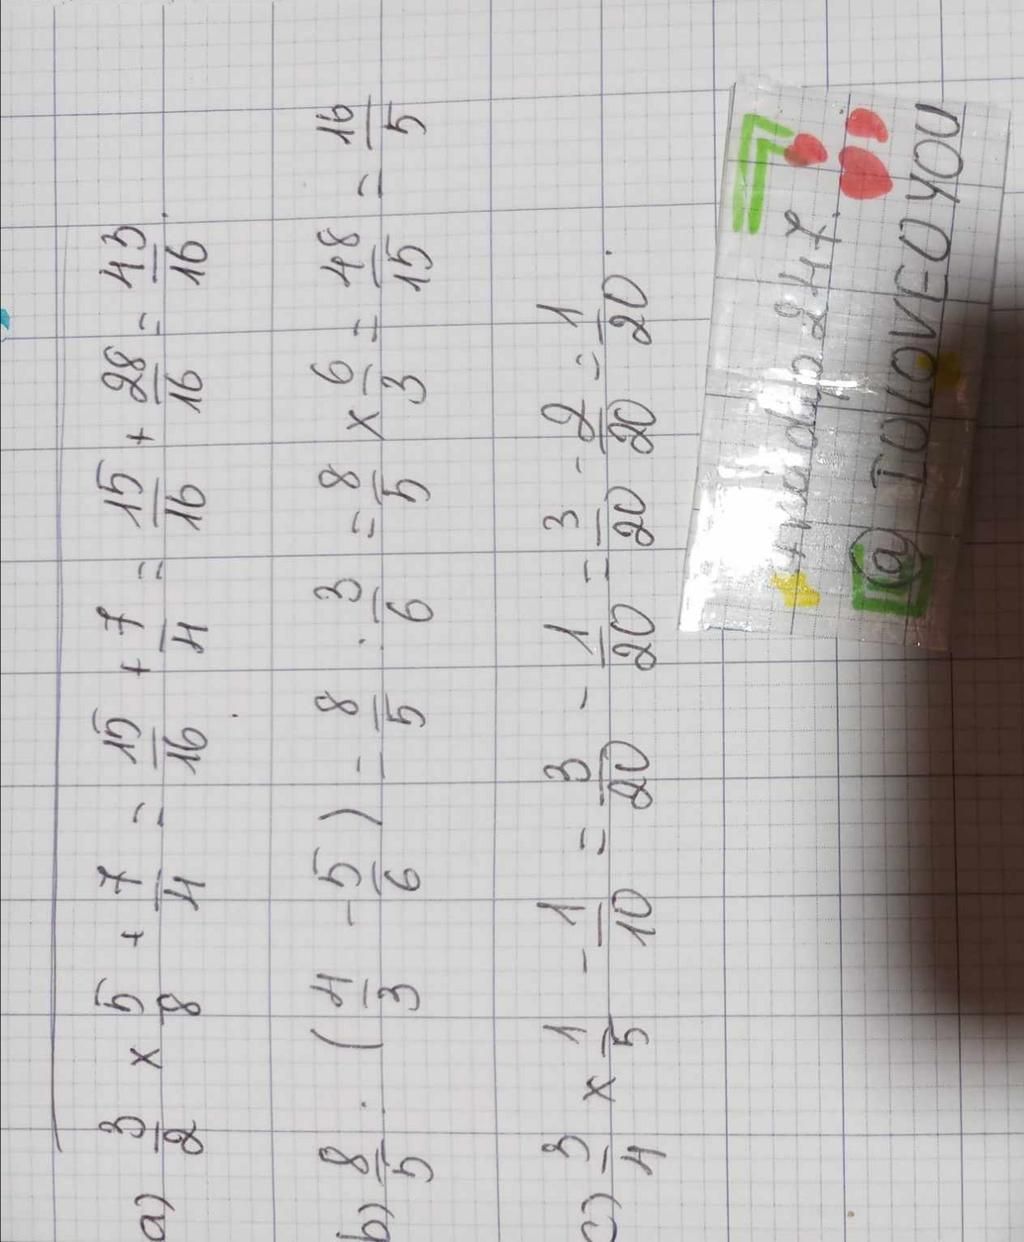 a) 3/2 x 5/8 + 7/4 = 15/16 + 7/4 = 15/16 + 28/16 = 43/16.
b) 8/5 : (4/3 - 5/6) = 8/5 : 3/6 = 8/5 x 6/3 = 48/15 = 16/5
c) 3/4 x 1/5 - 1/10 = 3/20 - 1/20 = 3/20 - 2/20 = 1/20.
247.
(a) IOLOVEOYOU